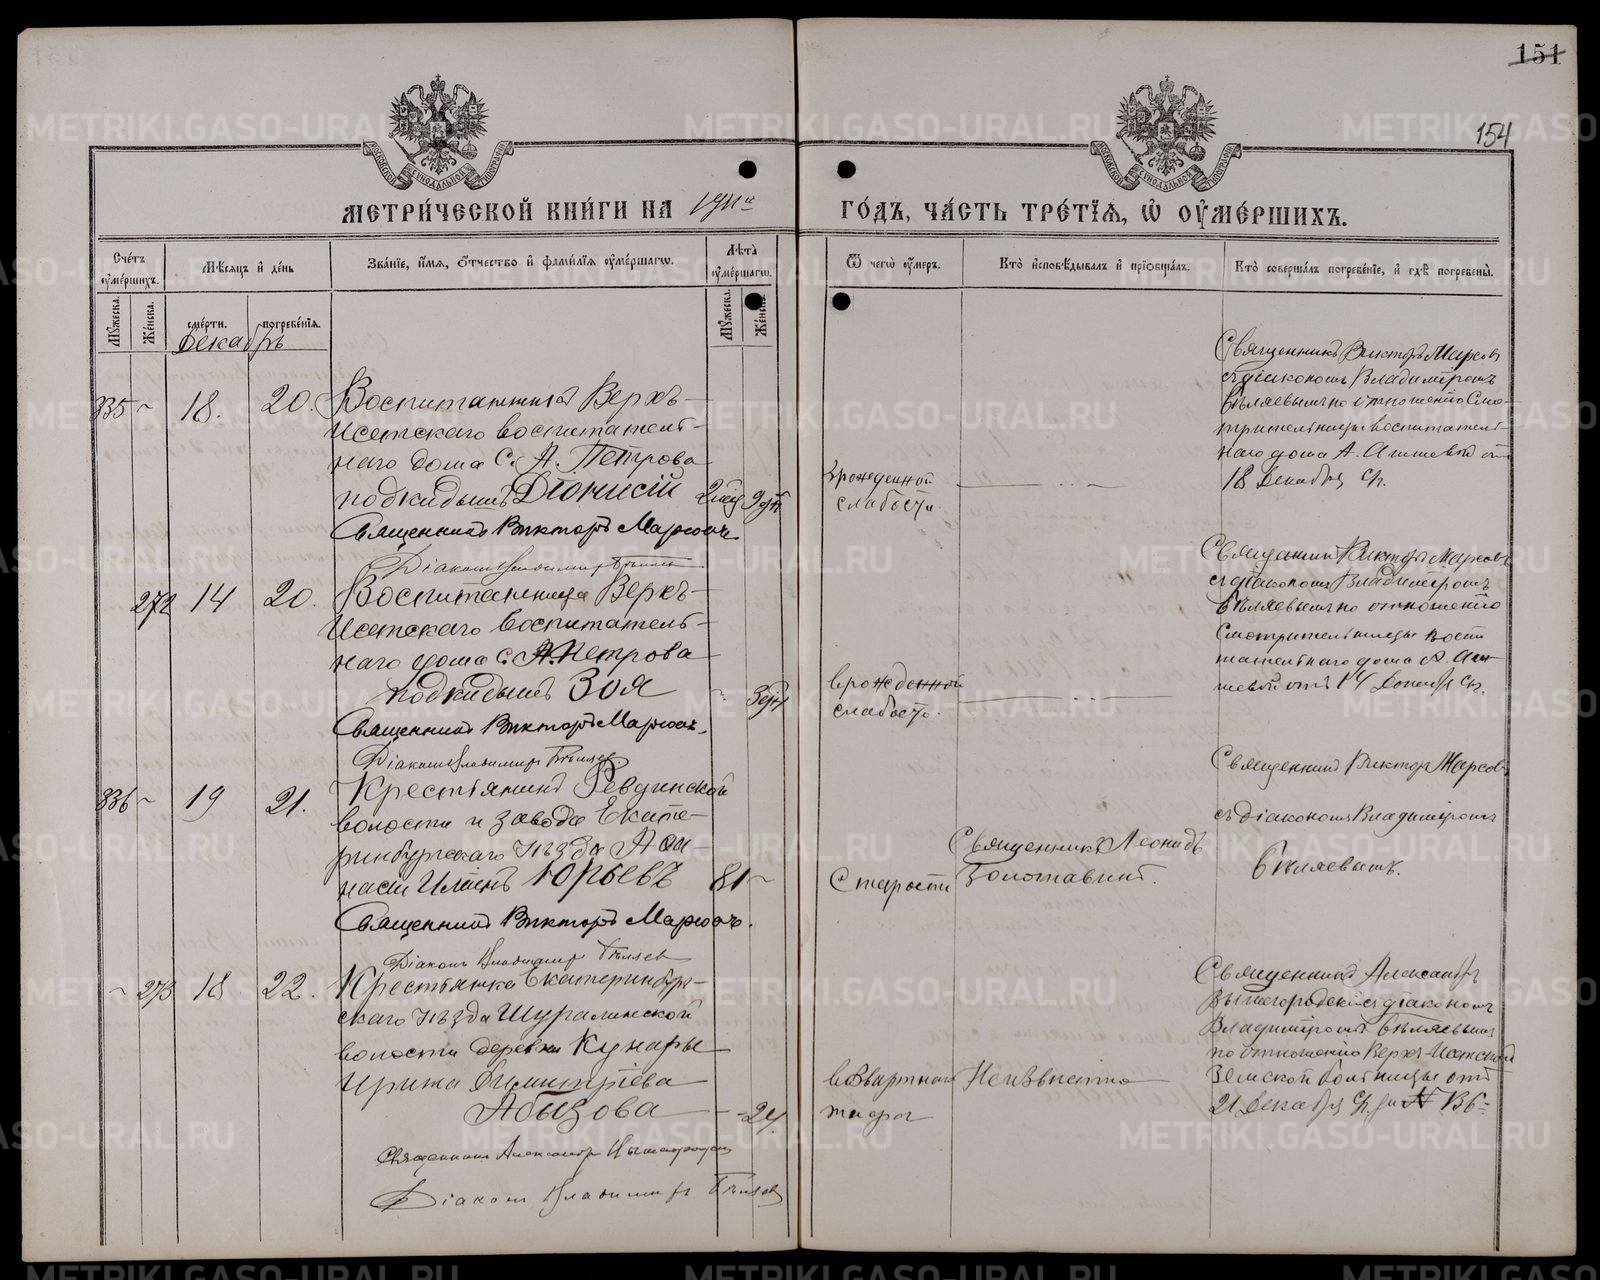 151
154
МЕТРИ́ЧЕСКОЙ КНИ́ГИ НА 1911й
ГО́ДЪ, ЧА́СТЬ ТРЕ́ТЇѦ, Ѡ҆ ОУ҆МЕ́РШИХЪ.
Сче́тъ оу҆ме́ршихъ.
Мѣ́сяцъ и҆ де́нь
Зва́нїе, и҆́мѧ, ѻ҆́тчество и҆ фами́лїѧ оу҆ме́ршагѡ.
Лѣ́та оу҆ме́ршагѡ.
Ѿ чегѡ̀ оу҆́меръ.
Кто̀ и҆сповѣ́дывалъ и҆ прїѡбща́лъ.
Кто̀ соверша́лъ погребе́нїе, и҆ гдѣ̀ погребены̀.
Му́жеска.
Же́нска.
сме́рти.
погребе́нїѧ.
Му́жеска.
Же́нска.
Декабрь
335
18.
20.
Воспитанникъ Верхъ-
Исетскаго воспитатель-
наго дома С. А. Петрова
подкидышъ Діонисій
Священникъ Викторъ Марсовъ
Діаконъ Владимиръ Бѣляевъ
врожденной
слабости
Священникъ Викторъ Марсовъ
съ діакономъ Владиміромъ
Бѣляевымъ по отношенію Смо-
трительницы воспитатель-
наго дома А.
18 Декабря
272
14
20.
Воспитанница Верхъ-
Исетскаго воспитатель-
наго дома С. А. Петрова
подкидышъ Зоя
Священникъ Викторъ Марсовъ.
Діаконъ Владимиръ Бѣляевъ
врожденной
слабости.
Священникъ Викторъ Марсовъ
съ діакономъ Владиміромъ
Бѣляевымъ по отношенію
Смотрительницы воспи
тательнаго дома А.
отъ 14 Декабря
336
19
21.
Крестьянинъ Ревдинской
волости и завода Екате-
ринбургскаго уѣзда Аѳа-
насій Юрьевъ
81
Священникъ Викторъ Марсовъ.
Діаконъ Владимиръ Бѣляевъ
Старости
Священникъ Леонидъ
Золотавинъ.
Священникъ Викторъ Марсовъ
съ діакономъ Владиміромъ
Бѣляевымъ.
273
18
22.
Крестьянка Екатеринбург-
скаго уѣзда Шуралинской
волости деревни Кунары
Ирина Димитріева
Абызова
24
Священникъ Александръ
Діаконъ Владимиръ Бѣляевъ
тифа
Неизвѣстно
Священникъ Александръ
съ діакономъ
Владиміромъ Бѣляевымъ
по отношенію Верхъ-Исетской
Земской больницы отъ
21 Декабря за №